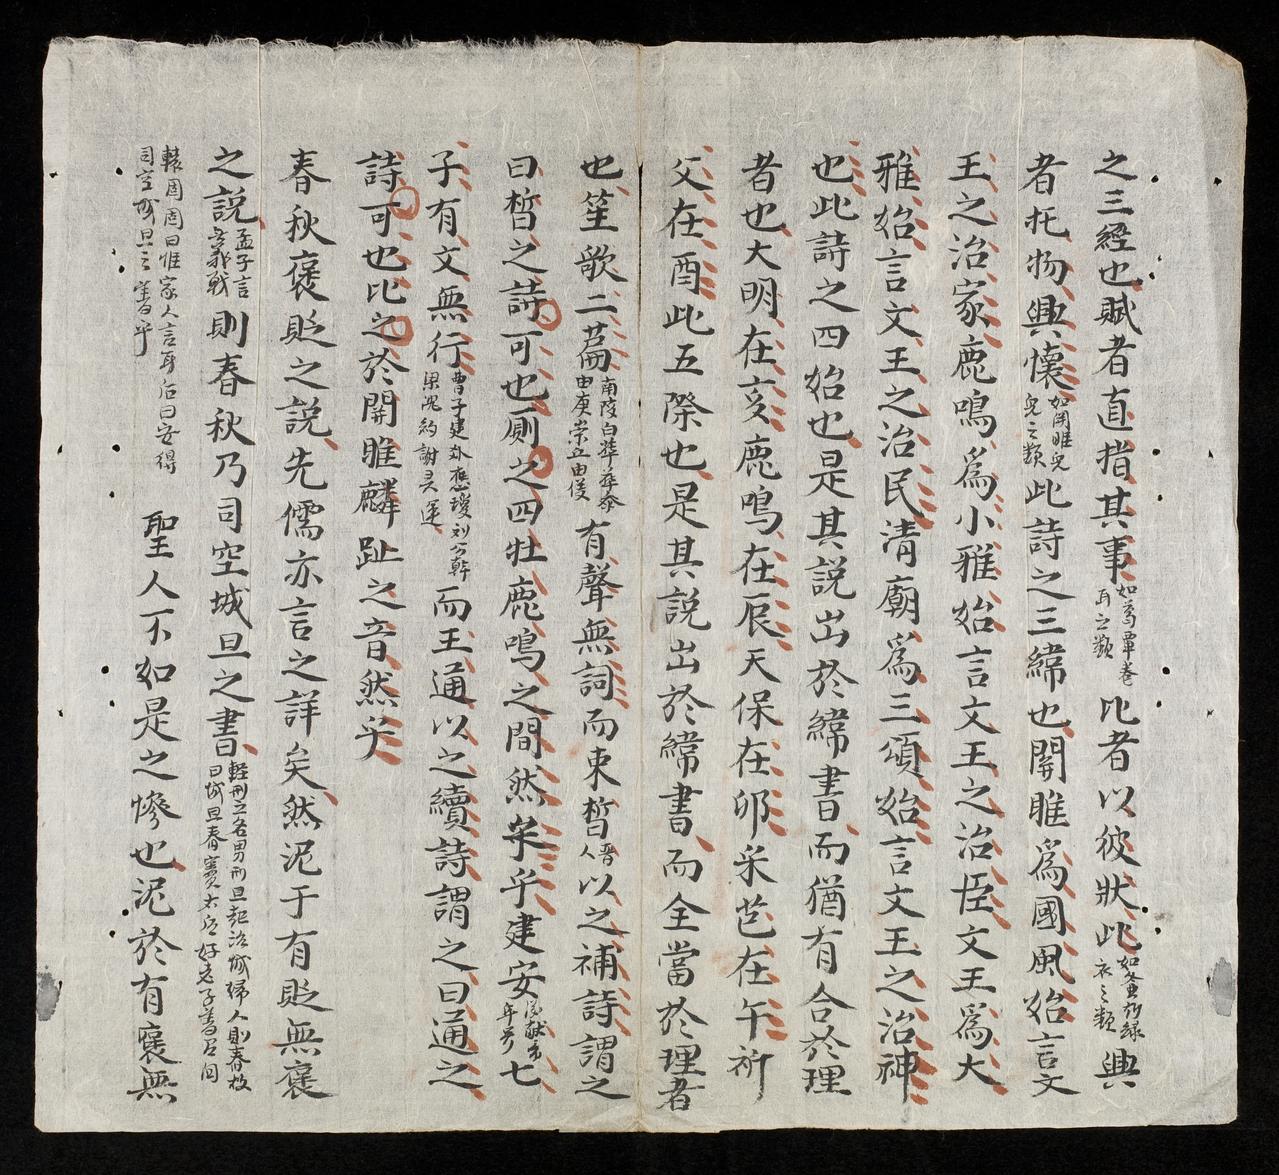 之三經也賦者直指其事如葛覃卷耳之類比者以彼狀此如螽斯緑衣之類興
者托物興懷如關雎兔兔之類此詩之三緯也關雎爲國風始言文
王之治家鹿鳴爲小雅始言文王之治臣文王爲大
雅始言文王之治民清廟爲三頌始言文王之治神
也此詩之四始也是其說出於緯書而猶有合於理
者也大明在亥鹿鳴在辰天保在卯采芑在午祈
父在酉此五際也是其說出於緯書而全當於理者
也笙歌二萹南陔白華華黍由庚崇丘由儀有聲無詞而束晳晋人以之補詩謂之
曰晳之詩可也厠之四牡鹿鳴之間然乎乎建安漢献帝年号七
子有文無行曹子建應瓊刘公幹梁沈約謝灵運而王通以之續詩謂之曰通之
詩可也比之於關雎麟趾之音然乎
春秋褒貶之說先儒亦言之詳矣然泥于有貶無褒
之說孟子言義戰則春秋乃司空城旦之書輕刑之名男刑旦起治城婦人則舂故曰城旦舂竇太后好老子書召固
轅固固曰惟家人言耳后曰安得司空城旦之書乎聖人不如是之慘也泥於有褒無